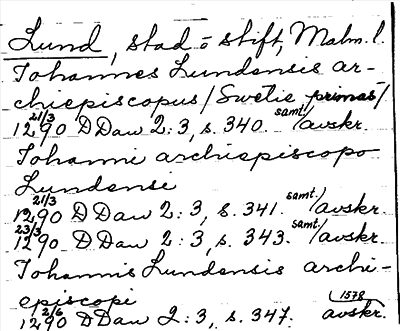 Lund, stad o stift, Malm. l.
Johannes Lundensis ar-
chiepiscopus/Swetie primas/
21/3 1290 DDan 2:3, s. 340. samt./avskr.
Johanni archiepiscopo
Lundensi
21/3 1290 DDan 2:3, s. 341. samt./avskr.
23/3 1290 DDan 2:3, s. 343. samt./avskr.
Johannis Lundensis archi-
episcopi
2/6 1290 DDan 2:3, s. 347. 1578 avskr.